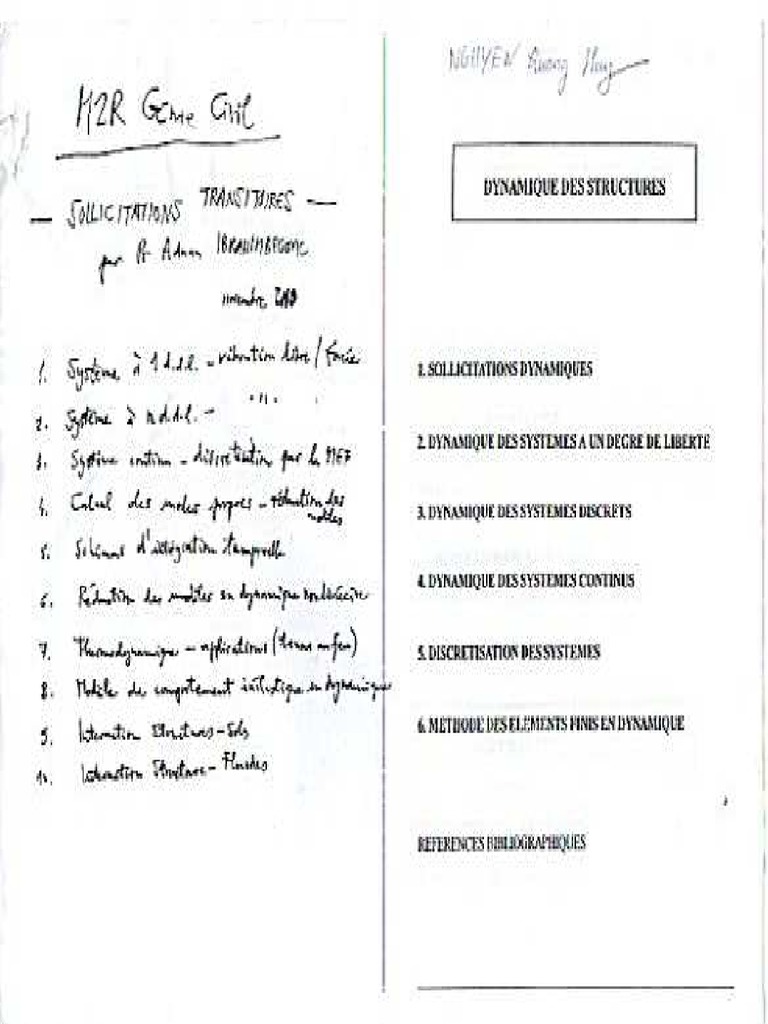 M2R Génie Civil
— SOLLICITATIONS TRANSITOIRES —
par Pr Adnan IBRAHIMBEGOVIC
novembre, 2010
1. Système à 1 d.d.l. - vibration libre / forcée
2. Système à n d.d.l. - " "
3. Système continu - discrétisation par la MEF
4. Calcul des modes propres - réduction des modes
5. Schémas d'intégration temporelle
6. Réduction des modèles en dynamique nonlinéaire
7. Thermodynamique - applications
8. Modèle de comportement inélastique en dynamique
9. Interaction Structures - Sols
10. Interaction Structure - Fluides
NGUYEN Huy
DYNAMIQUE DES STRUCTURES
1. SOLLICITATIONS DYNAMIQUES
2. DYNAMIQUE DES SYSTEMES A UN DEGRE DE LIBERTE
3. DYNAMIQUE DES SYSTEMES DISCRETS
4. DYNAMIQUE DES SYSTEMES CONTINUS
5. DISCRETISATION DES SYSTEMES
6. METHODE DES ELEMENTS FINIS EN DYNAMIQUE
REFERENCES BIBLIOGRAPHIQUES